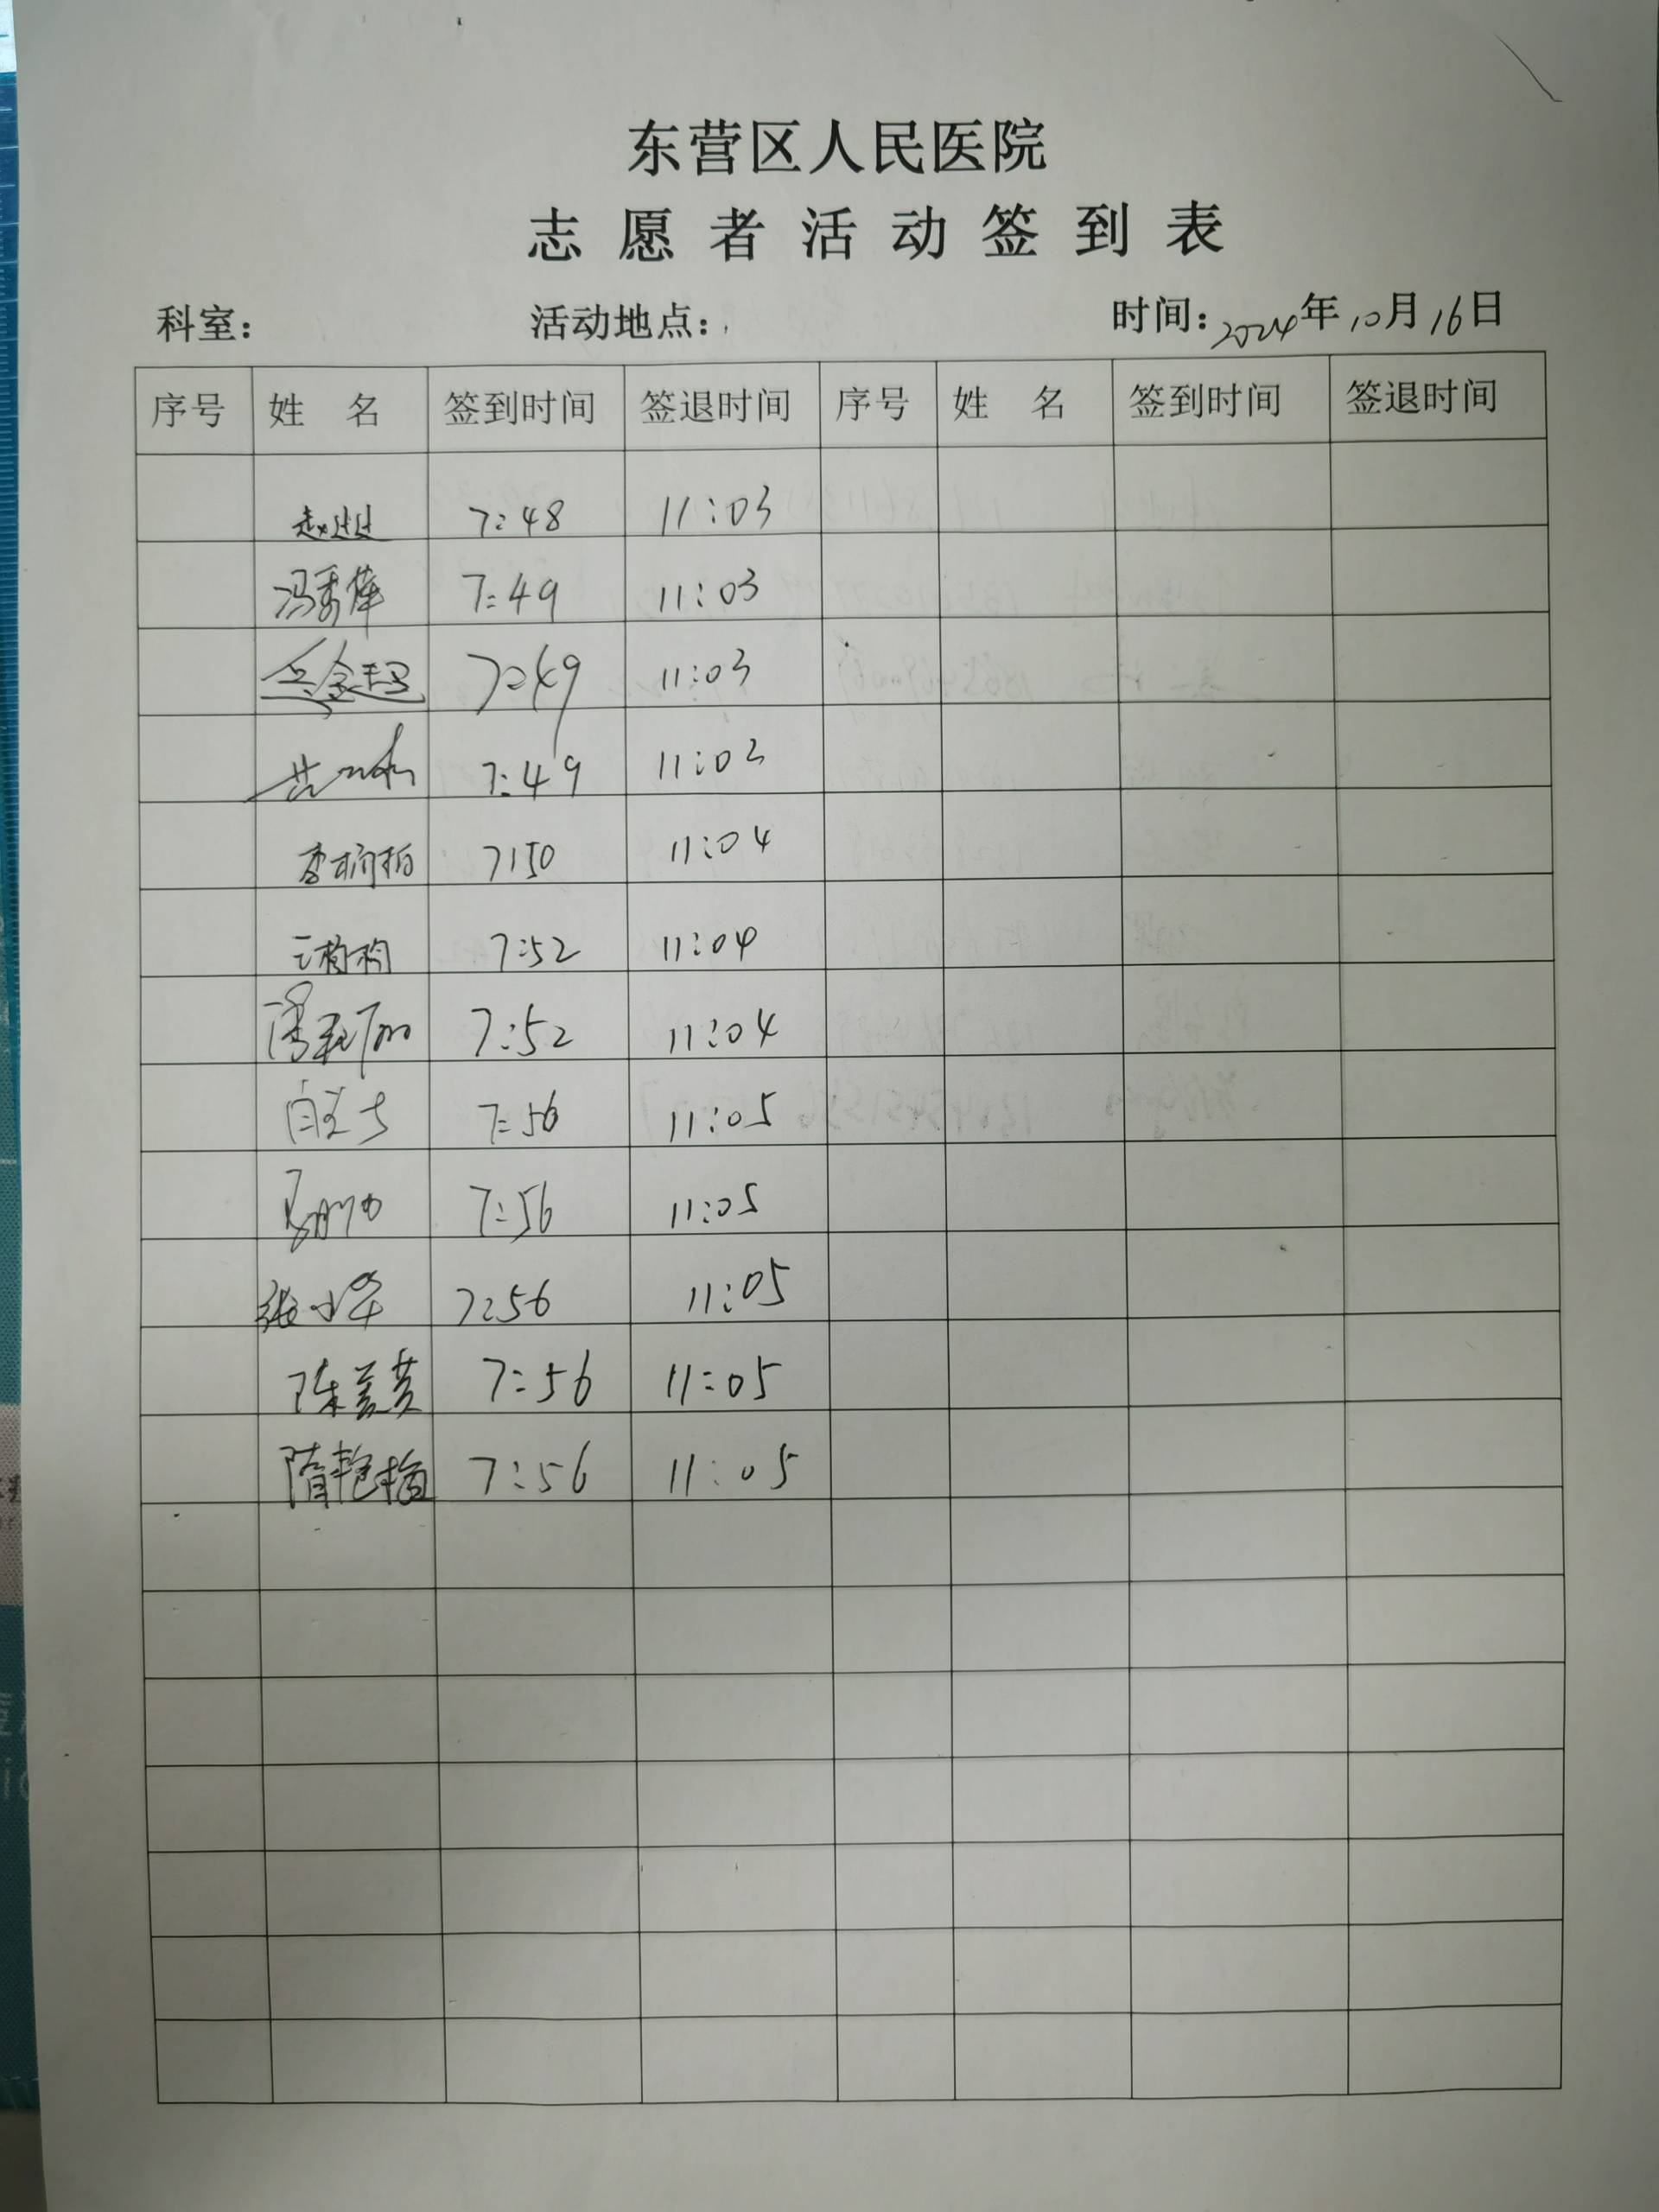 东营区人民医院
志愿者活动签到表
科室： 活动地点： 时间：2024年10月16日
序号 姓 名 签到时间 签退时间 序号 姓 名 签到时间 签退时间
7:48 11:03
冯秀萍 7:49 11:03
7:49 11:03
7:49 11:03
7:50 11:04
7:52 11:04
7:52 11:04
7:56 11:05
7:56 11:05
张小华 7:56 11:05
陈美荣 7:56 11:05
隋艳梅 7:56 11:05